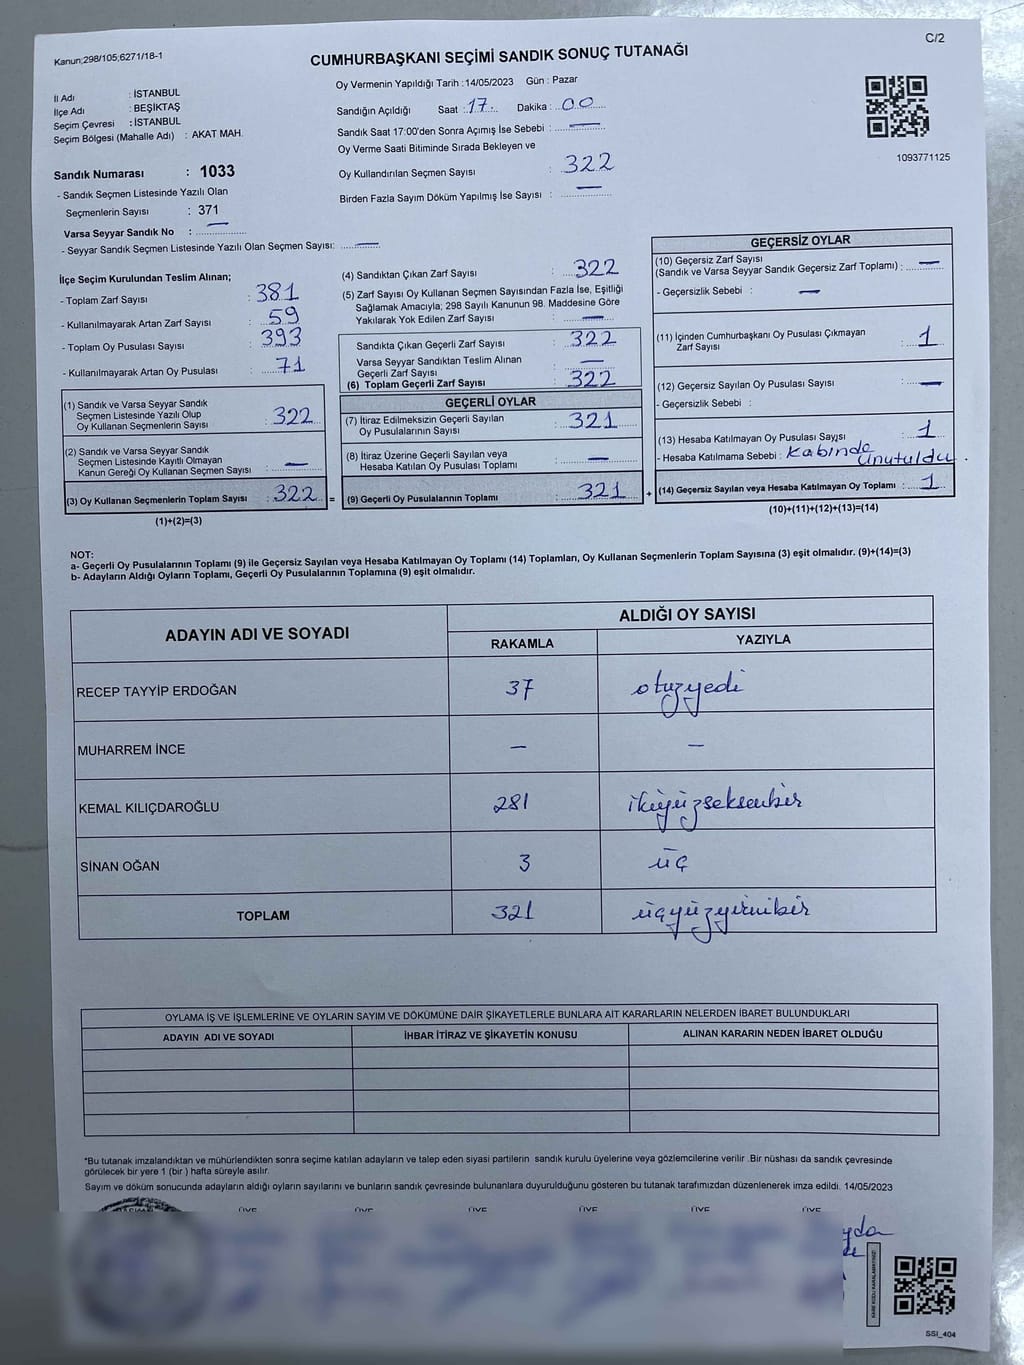 Kanun;298/105;6271/18-1
C/2
CUMHURBAŞKANI SEÇİMİ SANDIK SONUÇ TUTANAĞI
Oy Vermenin Yapıldığı Tarih :14/05/2023 Gün : Pazar
İl Adı : İSTANBUL
İlçe Adı : BEŞİKTAŞ
Seçim Çevresi : İSTANBUL
Seçim Bölgesi (Mahalle Adı) : AKAT MAH.
Sandığın Açıldığı Saat : 17. Dakika : 00
Sandık Saat 17:00'den Sonra Açımış İse Sebebi : —
Oy Verme Saati Bitiminde Sırada Bekleyen ve
Oy Kullandırılan Seçmen Sayısı : 322
Birden Fazla Sayım Döküm Yapılmış İse Sayısı : —
1093771125
Sandık Numarası : 1033
- Sandık Seçmen Listesinde Yazılı Olan
Seçmenlerin Sayısı : 371
Varsa Seyyar Sandık No : —
- Seyyar Sandık Seçmen Listesinde Yazılı Olan Seçmen Sayısı: —
İlçe Seçim Kurulundan Teslim Alınan;
- Toplam Zarf Sayısı : 381
- Kullanılmayarak Artan Zarf Sayısı : 59
- Toplam Oy Pusulası Sayısı : 393
- Kullanılmayarak Artan Oy Pusulası : 71
(1) Sandık ve Varsa Seyyar Sandık
Seçmen Listesinde Yazılı Olup
Oy Kullanan Seçmenlerin Sayısı : 322
(2) Sandık ve Varsa Seyyar Sandık
Seçmen Listesinde Kayıtlı Olmayan
Kanun Gereği Oy Kullanan Seçmen Sayısı : —
(3) Oy Kullanan Seçmenlerin Toplam Sayısı : 322 =
(1)+(2)=(3)
(4) Sandıktan Çıkan Zarf Sayısı : 322
(5) Zarf Sayısı Oy Kullanan Seçmen Sayısından Fazla İse, Eşitliği
Sağlamak Amacıyla; 298 Sayılı Kanunun 98. Maddesine Göre
Yakılarak Yok Edilen Zarf Sayısı : —
Sandıkta Çıkan Geçerli Zarf Sayısı : 322
Varsa Seyyar Sandıktan Teslim Alınan
Geçerli Zarf Sayısı : —
(6) Toplam Geçerli Zarf Sayısı : 322
GEÇERLİ OYLAR
(7) İtiraz Edilmeksizin Geçerli Sayılan
Oy Pusulalarının Sayısı : 321
(8) İtiraz Üzerine Geçerli Sayılan veya
Hesaba Katılan Oy Pusulası Toplamı : —
(9) Geçerli Oy Pusulalarının Toplamı : 321 +
GEÇERSİZ OYLAR
(10) Geçersiz Zarf Sayısı
(Sandık ve Varsa Seyyar Sandık Geçersiz Zarf Toplamı) : —
- Geçersizlik Sebebi : —
(11) İçinden Cumhurbaşkanı Oy Pusulası Çıkmayan
Zarf Sayısı : 1
(12) Geçersiz Sayılan Oy Pusulası Sayısı : —
- Geçersizlik Sebebi :
(13) Hesaba Katılmayan Oy Pusulası Sayısı : 1
- Hesaba Katılmama Sebebi : Kabinde
Unutuldu.
(14) Geçersiz Sayılan veya Hesaba Katılmayan Oy Toplamı : 1
(10)+(11)+(12)+(13)=(14)
NOT:
a- Geçerli Oy Pusulalarının Toplamı (9) ile Geçersiz Sayılan veya Hesaba Katılmayan Oy Toplamı (14) Toplamları, Oy Kullanan Seçmenlerin Toplam Sayısına (3) eşit olmalıdır. (9)+(14)=(3)
b- Adayların Aldığı Oyların Toplamı, Geçerli Oy Pusulalarının Toplamına (9) eşit olmalıdır.
ADAYIN ADI VE SOYADI
ALDIĞI OY SAYISI
RAKAMLA YAZIYLA
RECEP TAYYİP ERDOĞAN 37 otuzyedi
MUHARREM İNCE — —
KEMAL KILIÇDAROĞLU 281 ikiyüzseksenbir
SİNAN OĞAN 3 üç
TOPLAM 321 üçyüzyirmibir
OYLAMA İŞ VE İŞLEMLERİNE VE OYLARIN SAYIM VE DÖKÜMÜNE DAİR ŞİKAYETLERLE BUNLARA AİT KARARLARIN NELERDEN İBARET BULUNDUKLARI
ADAYIN ADI VE SOYADI İHBAR İTİRAZ VE ŞİKAYETİN KONUSU ALINAN KARARIN NEDEN İBARET OLDUĞU
*Bu tutanak imzalandıktan ve mühürlendikten sonra seçime katılan adayların ve talep eden siyasi partilerin sandık kurulu üyelerine veya gözlemcilerine verilir .Bir nüshası da sandık çevresinde
görülecek bir yere 1 (bir ) hafta süreyle asılır.
Sayım ve döküm sonucunda adayların aldığı oyların sayılarını ve bunların sandık çevresinde bulunanlara duyurulduğunu gösteren bu tutanak tarafımızdan düzenlenerek imza edildi. 14/05/2023
ÜYE ÜYE ÜYE ÜYE ÜYE ÜYE
KARE KODU KARALAMAYINIZ!
SSI_404